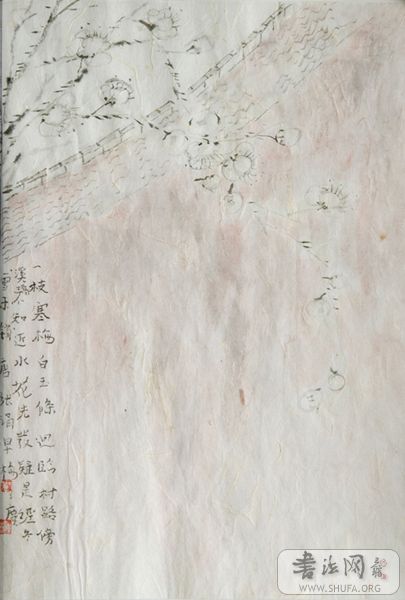 一枝寒梅白玉條迥臨村路傍
溪橋不知近水花先發疑是經冬
雪未銷 唐張謂早梅
書法网
WWW.SHUFA.ORG